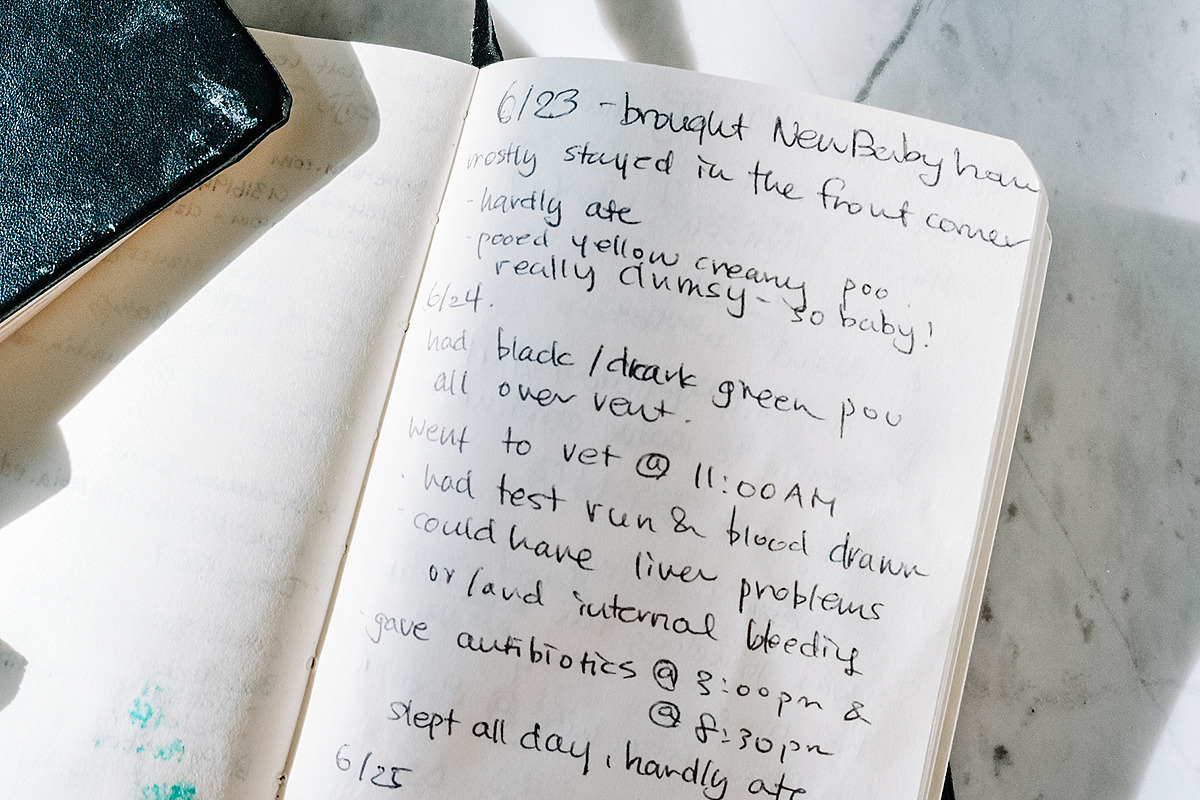 6/23 - brought New Baby hom
mostly stayed in the front corner
- hardly ate
- pooed yellow creamy poo.
really clumsy - so baby!
6/24.
had black / dark green poo
all over vent.
went to vet @ 11:00AM
· had test run & blood drawn
· could have liver problems
or / and internal bleeding
· gave antibiotics @ 3:00pm &
@ 8:30pm
slept all day, hardly ate
6/25